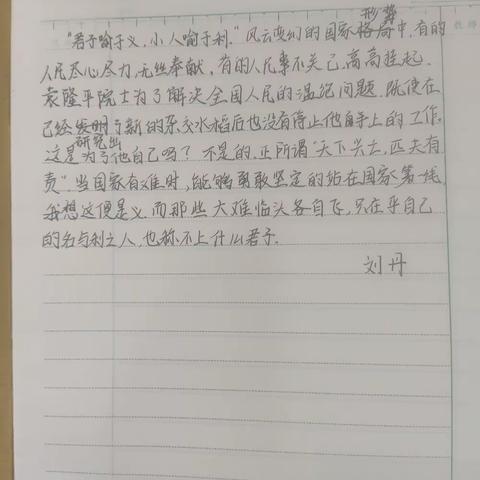 形势
"君子喻于义，小人喻于利。"风云变幻的国家格局中，有的
人民尽心尽力，无丝奉献，有的人民事不关己，高高挂起。
袁隆平院士为了解决全国人民的温饱问题，既使在
已经发明了新的杂交水稻后也没有停止他自手上的工作。
研究出
这是为了他自己吗？不是的，正所谓"天下兴亡，匹夫有
责"。当国家有难时，能够勇敢坚定的站在国家第一线
我想这便是义，而那些大难临头各自飞，只在乎自己
的名与利之人，也称不上什么君子。
刘丹